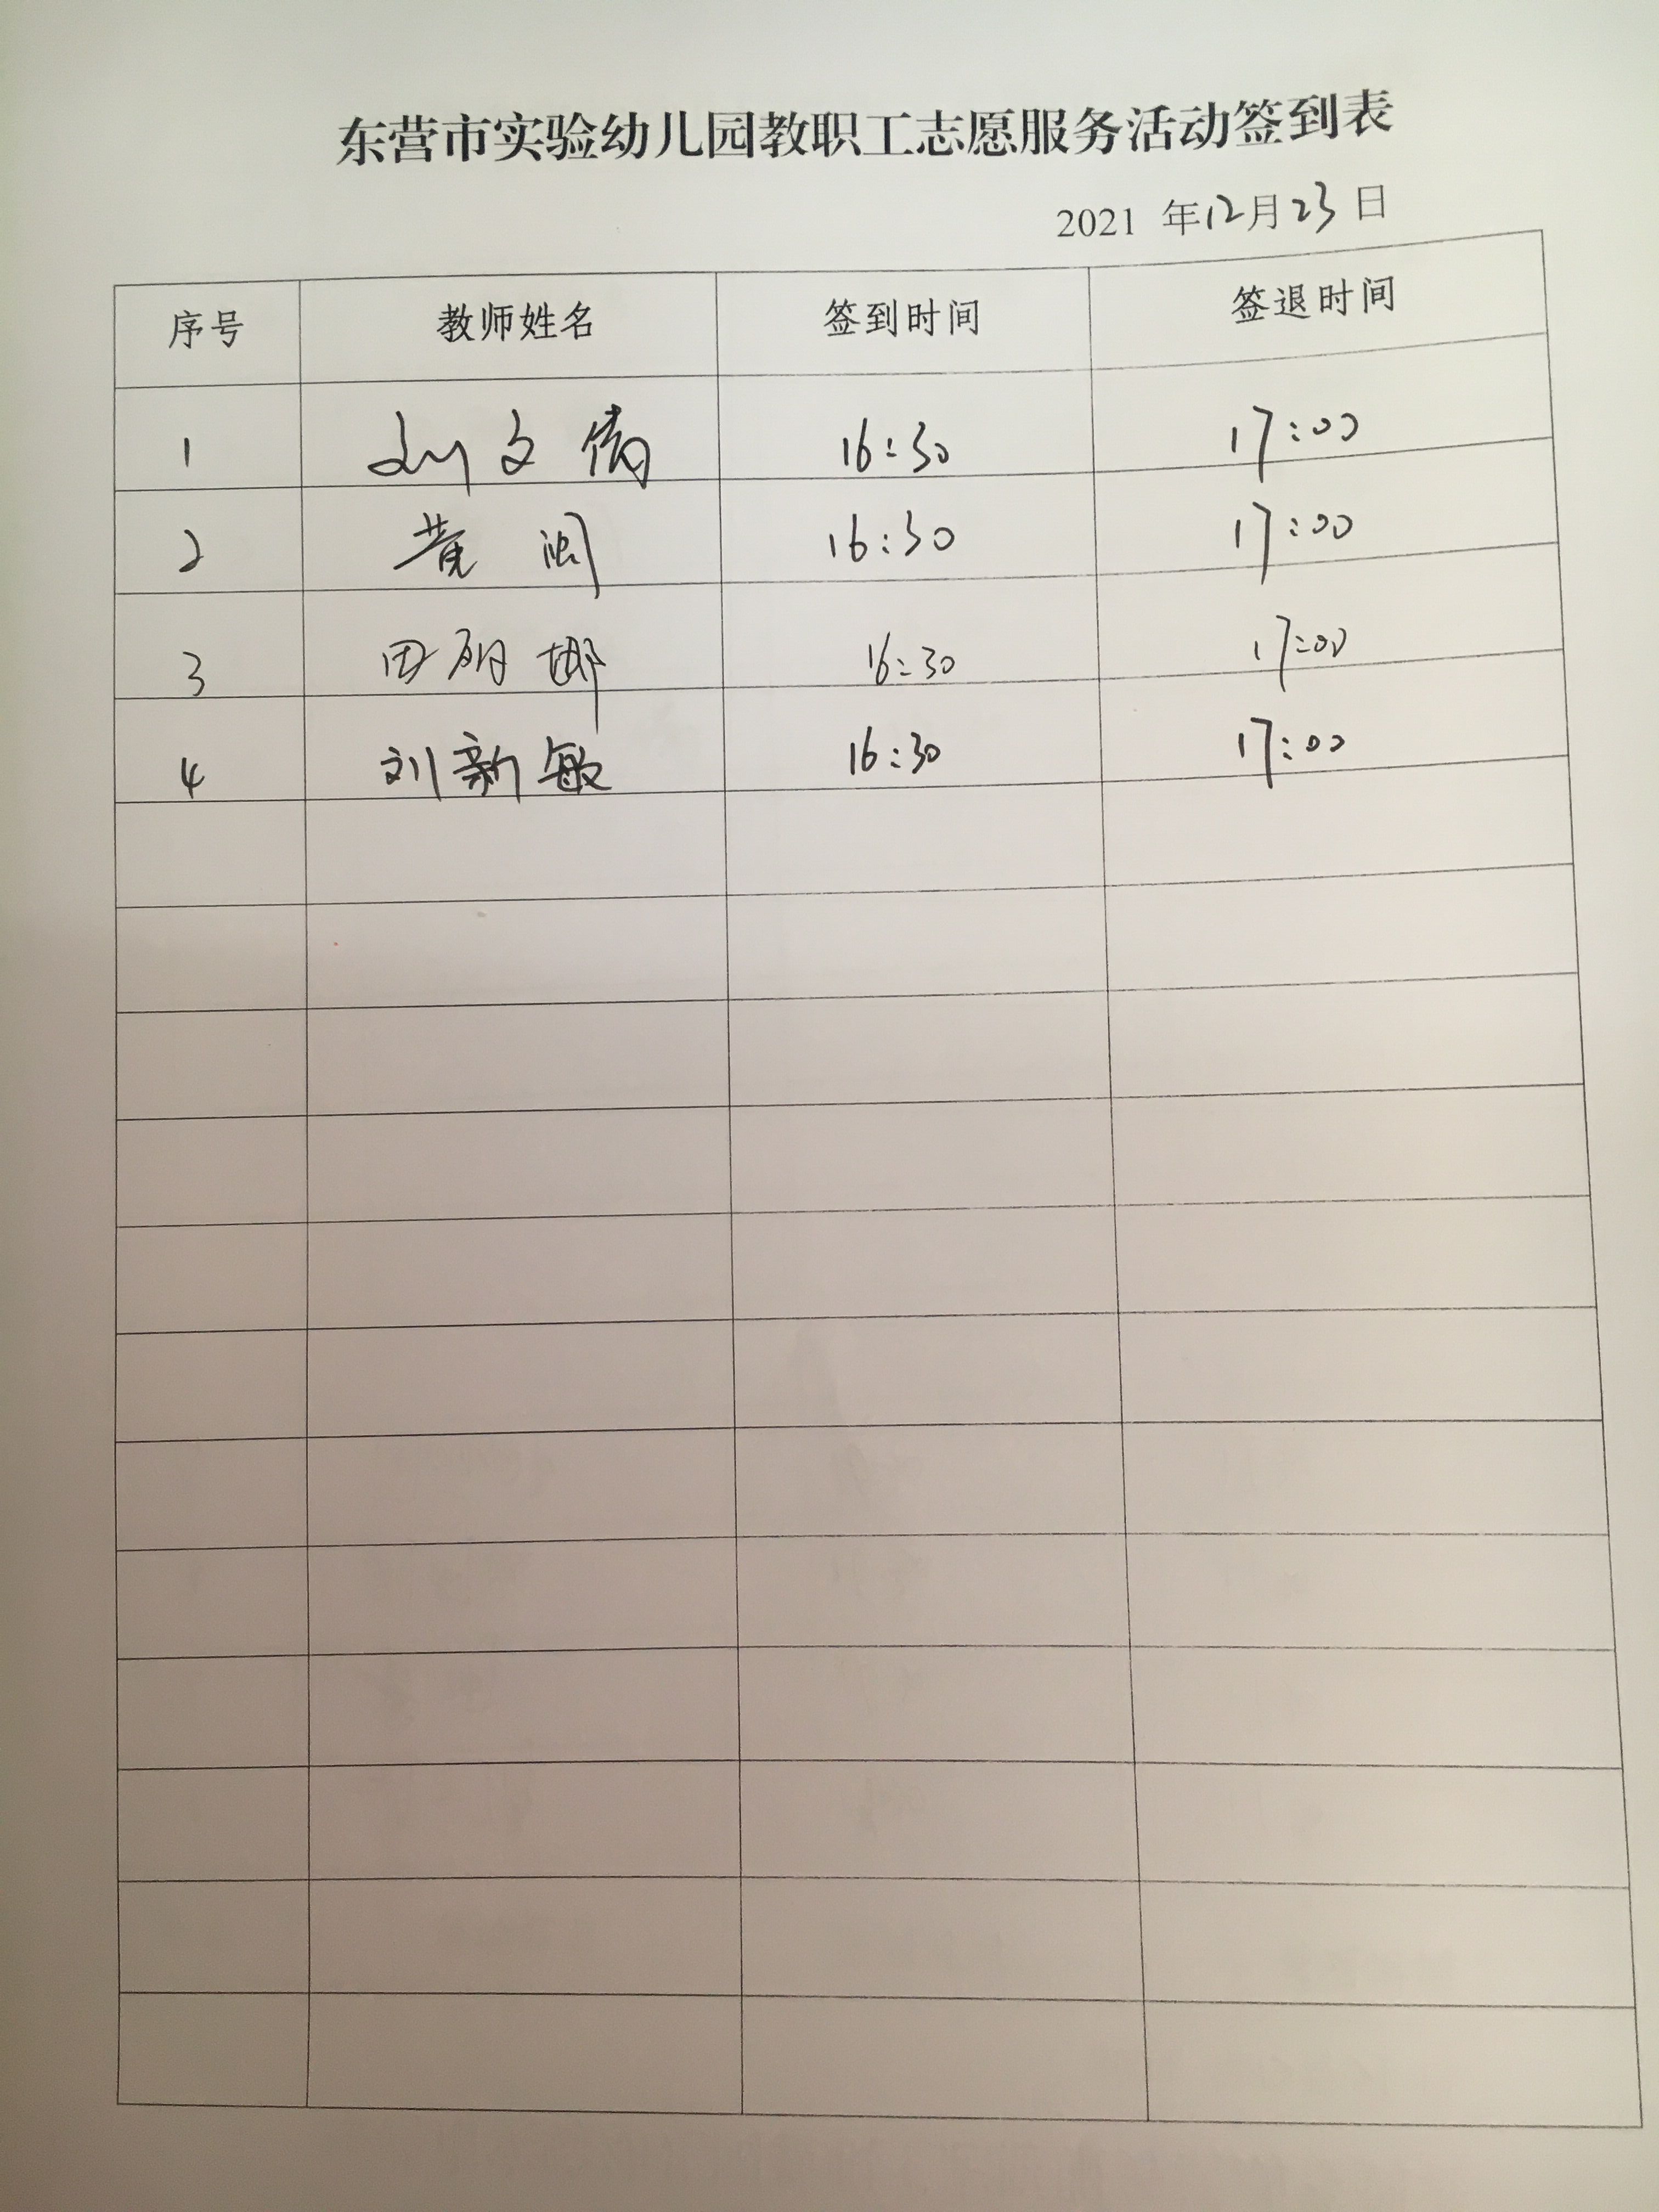 东营市实验幼儿园教职工志愿服务活动签到表
2021 年12月23日
序号 教师姓名 签到时间 签退时间
1 刘文倩 16:30 17:00
2 黄 16:30 17:00
3 田 娜 16:30 17:00
4 刘新敏 16:30 17:00